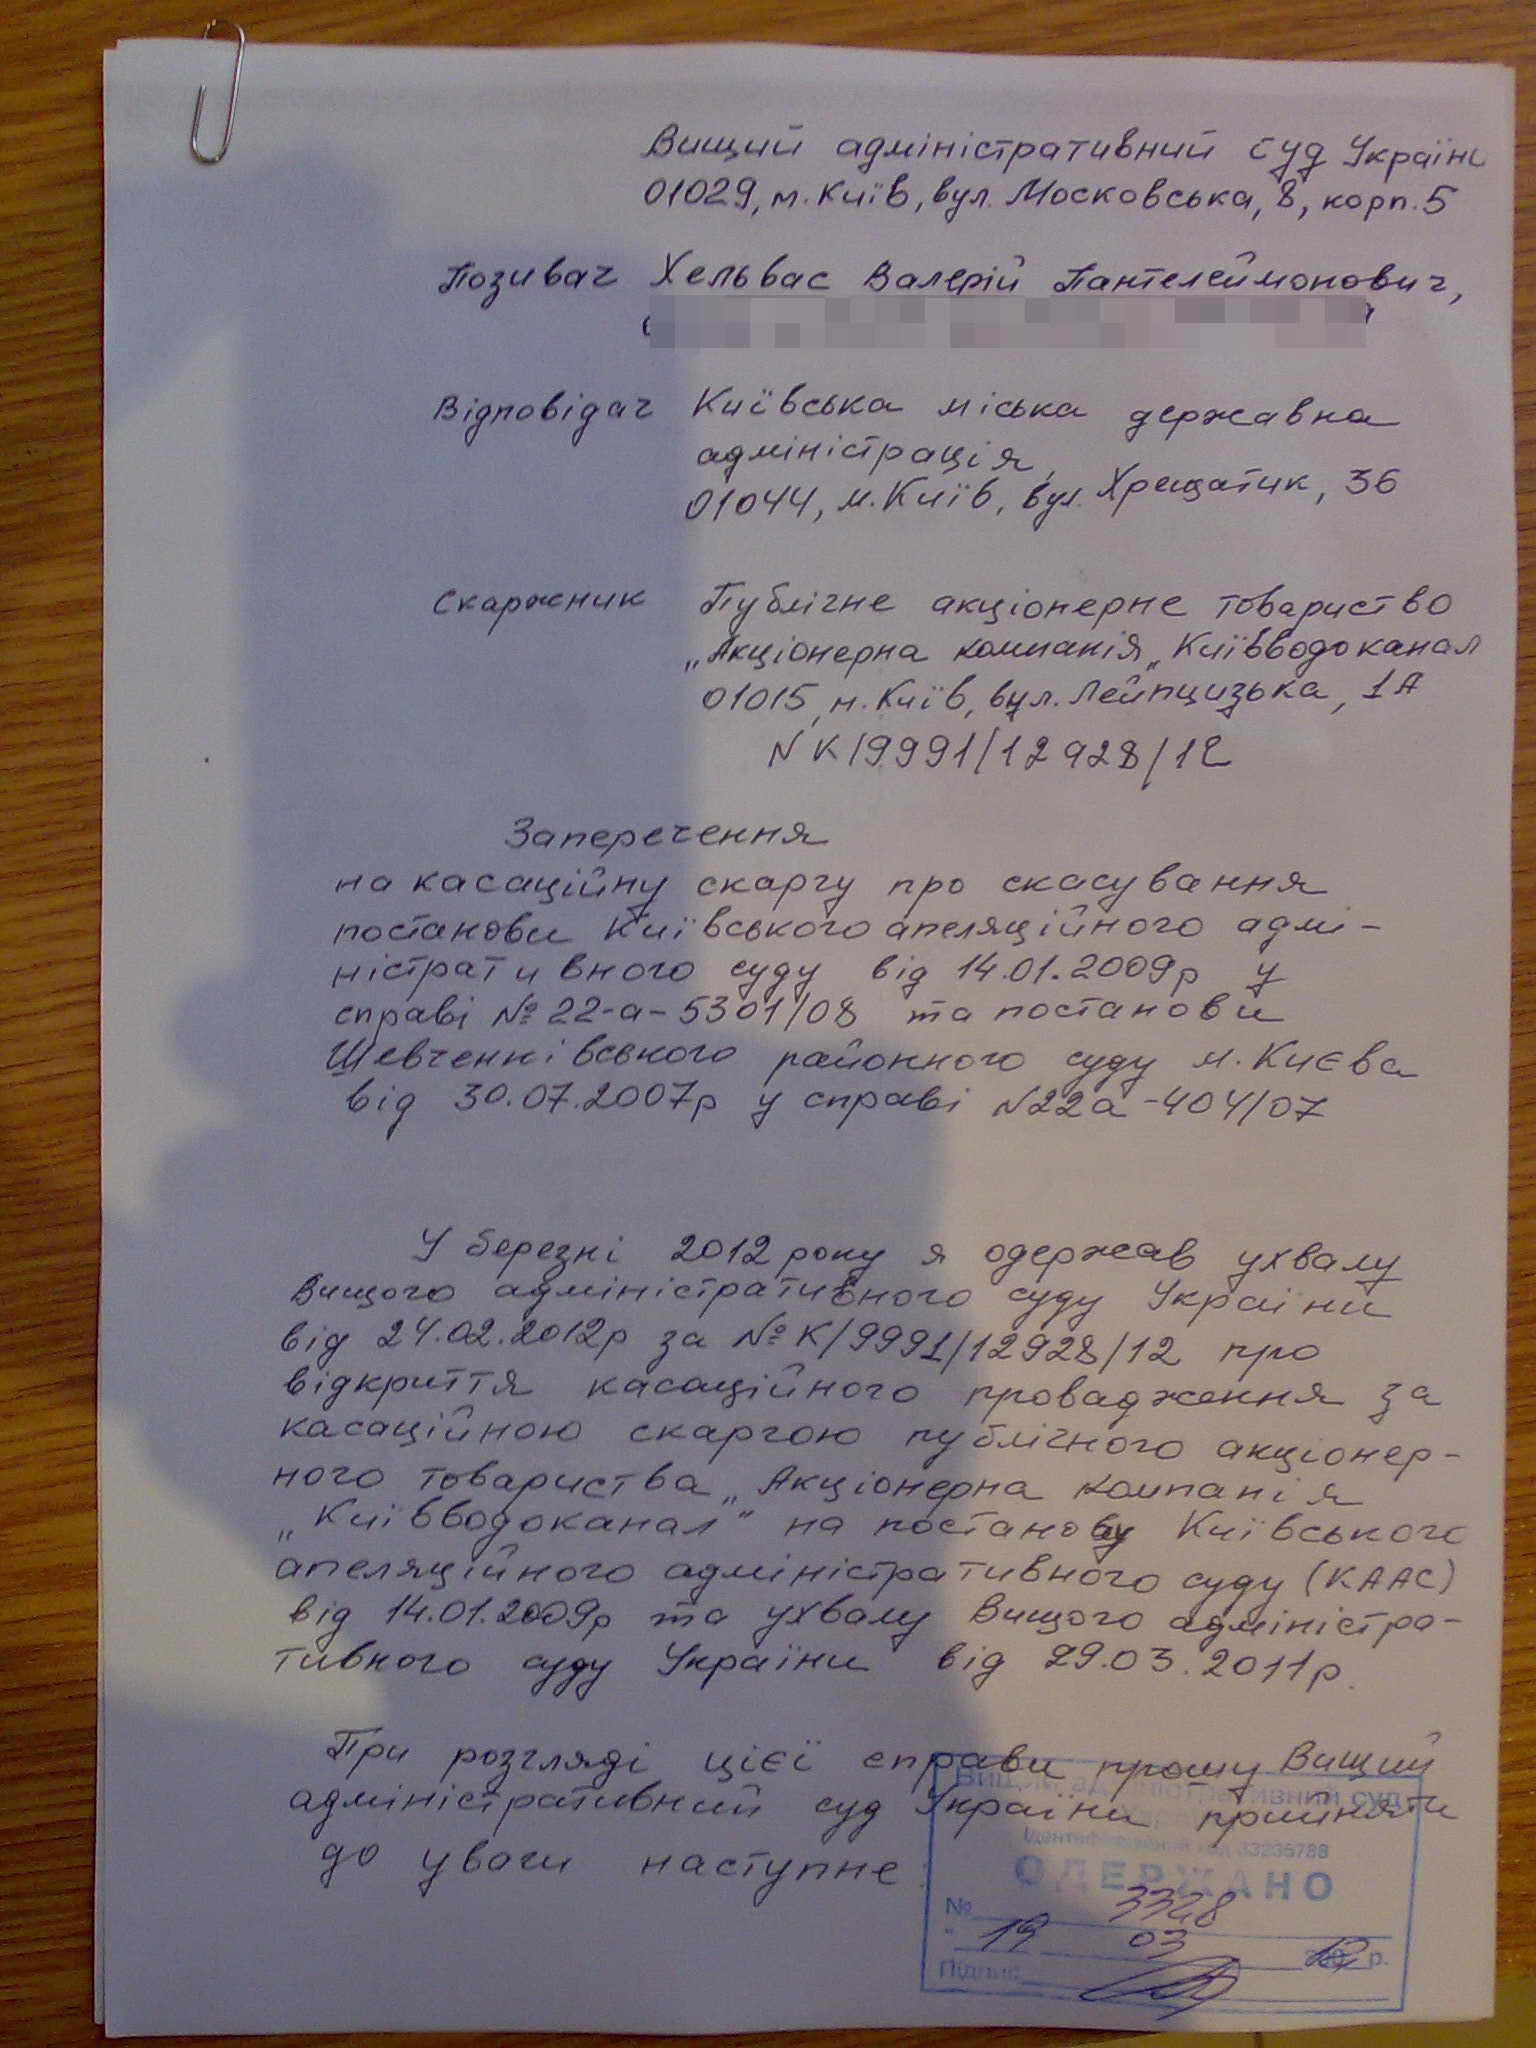 Вищий адміністративний суд України
01029, м. Київ, вул. Московська, 8, корп. 5
Позивач Хельвас Валерій Пантелеймонович,
Відповідач Київська міська державна
адміністрація,
01044, м. Київ, вул. Хрещатик, 36
Скаржник Публічне акціонерне товариство
„Акціонерна компанія „Київводоканал
01015, м. Київ, вул. Лейпцизька, 1А
N К/9991/12928/12
Заперечення
на касаційну скаргу про скасування
постанови Київського апеляційного адмі-
ністративного суду від 14.01.2009р у
справі № 22-а-5301/08 та постанови
Шевченківського районного суду м. Києва
від 30.07.2007р у справі N22а-404/07
У березні 2012 року я одержав ухвалу
Вищого адміністративного суду України
від 24.02.2012р за № К/9991/12928/12 про
відкриття касаційного провадження за
касаційною скаргою публічного акціонер-
ного товариства „Акціонерна компанія
„Київводоканал" на постанову Київського
апеляційного адміністративного суду (КААС)
від 14.01.2009р та ухвалу Вищого адміністра-
тивного суду України від 29.03.2011р.
При розгляді цієї справи прошу Вищий
адміністративний суд України прийняти
до уваги наступне:
Вищий адміністративний суд
Ідентифікаційний код 33235788
ОДЕРЖАНО
№ 3328
" 19 03 р.
Підпис